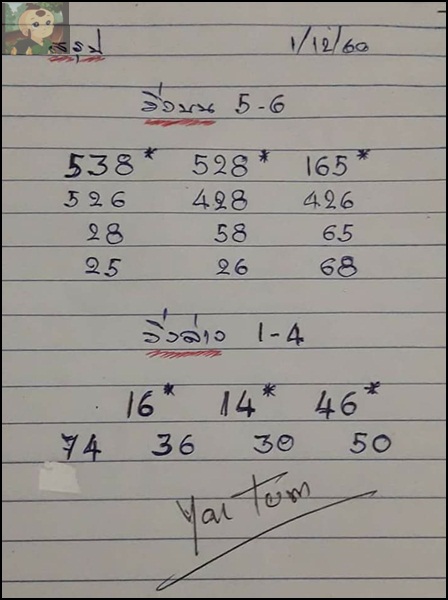 สรุป 1/12/60
วิ่งบน 5-6
538* 528* 165*
526 428 426
28 58 65
25 26 68
วิ่งล่าง 1-4
16* 14* 46*
74 36 30 50
Yai Tom